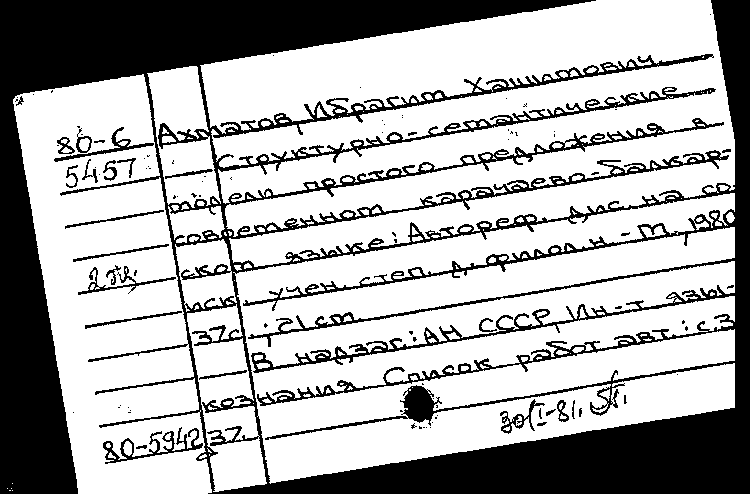 80-6 Ахматов, Ибрагим Хашимович.
5457 Структурно-семантические
модели простого предложения в
современном карачаево-балкар-
2 эк. ском языке: Автореф. дис. на со-
иск. учен. степ. д. филол. н. - М., 1980
37с.; 21 см
В надзаг.: АН СССР, Ин-т язы-
кознания Список работ авт.: с.3
80-5942 37.
30/I-81.